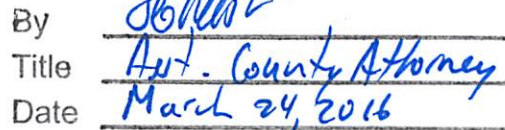 By
Title Ast. County Attorney
Date March 24, 2016